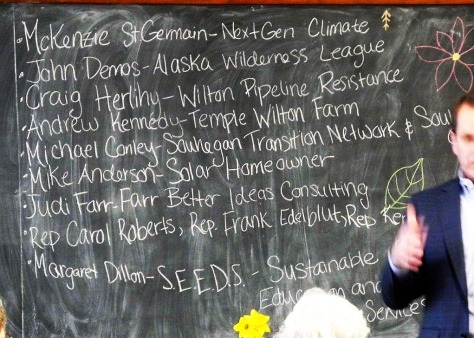 ·McKenzie StGermain-NextGen Climate
·John Demos-Alaska Wilderness League
·Craig Herlihy-Wilton Pipeline Resistance
·Andrew Kennedy-Temple Wilton Farm
·Michael Conley-Souhegan Transition Network & Sou
·Mike Anderson-Solar Homeowner
·Judi Farr-Farr Better Ideas Consulting
·Rep Carol Roberts, Rep. Frank Edelblut, Rep Ken
·Margaret Dillon-S.E.E.D.S. - Sustainable
Education and
Services